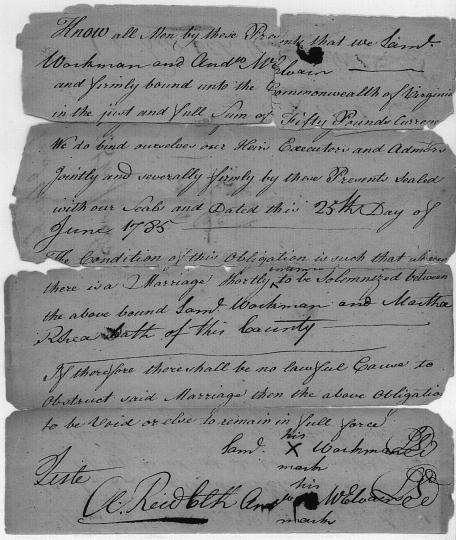 Know all Men by these Presents that we Saml.
Workman and Andw McElvain
and firmly bound unto the Commonwealth of Virginia
in the just and full Sum of Fifty Pounds Curren
We do bind ourselves our Heirs Executors and Admrs
Jointly and severally firmly by these Presents Sealed
with our Seals and Dated this 25th Day of
June 1785
The Condition of this Obligation is such that whereas
there is a Marriage Shortly intended to be Solemnized between
the above bound Saml. Workman and Martha
Rhea both of this County
If therefore there shall be no lawful Cause to
Obstruct said Marriage then the above Obligatio
to be Void or else to remain in full force
Saml. his X mark Workman
Teste
A. Reid Clk
his
McElvain
mark